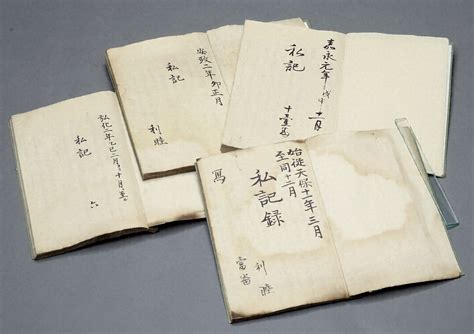 安政二年卯正月
私記
利睦
嘉永元年戊申
十一月
私記
弘化二年乙巳二月ゟ十月迄
私記
六
始従天保十一年三月
至同十二月
私記録
寫
利睦